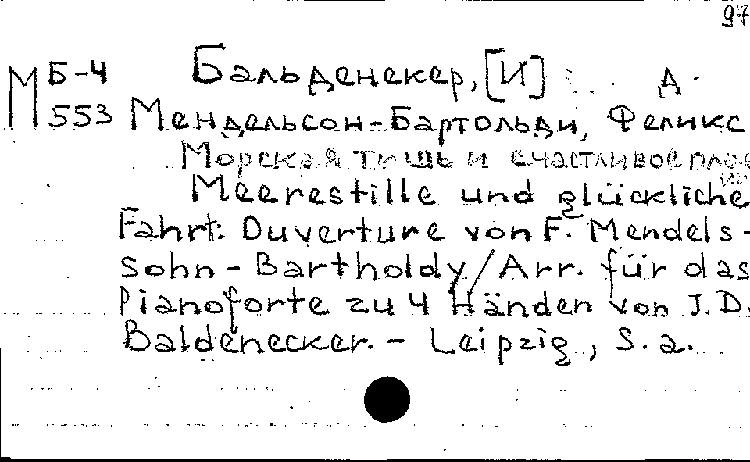 97
М Б-4 Бальденекер, [И] Д.
553 Мендельсон-Бартольди, Феликс
Морская тишь и счастливое плав
Meerestille und glückliche
Fahrt: Ouverture von F. Mendels-
sohn-Bartholdy/Arr. für das
Pianoforte zu 4 Händen von J.D.
Baldenecker. - Leipzig, s.a.